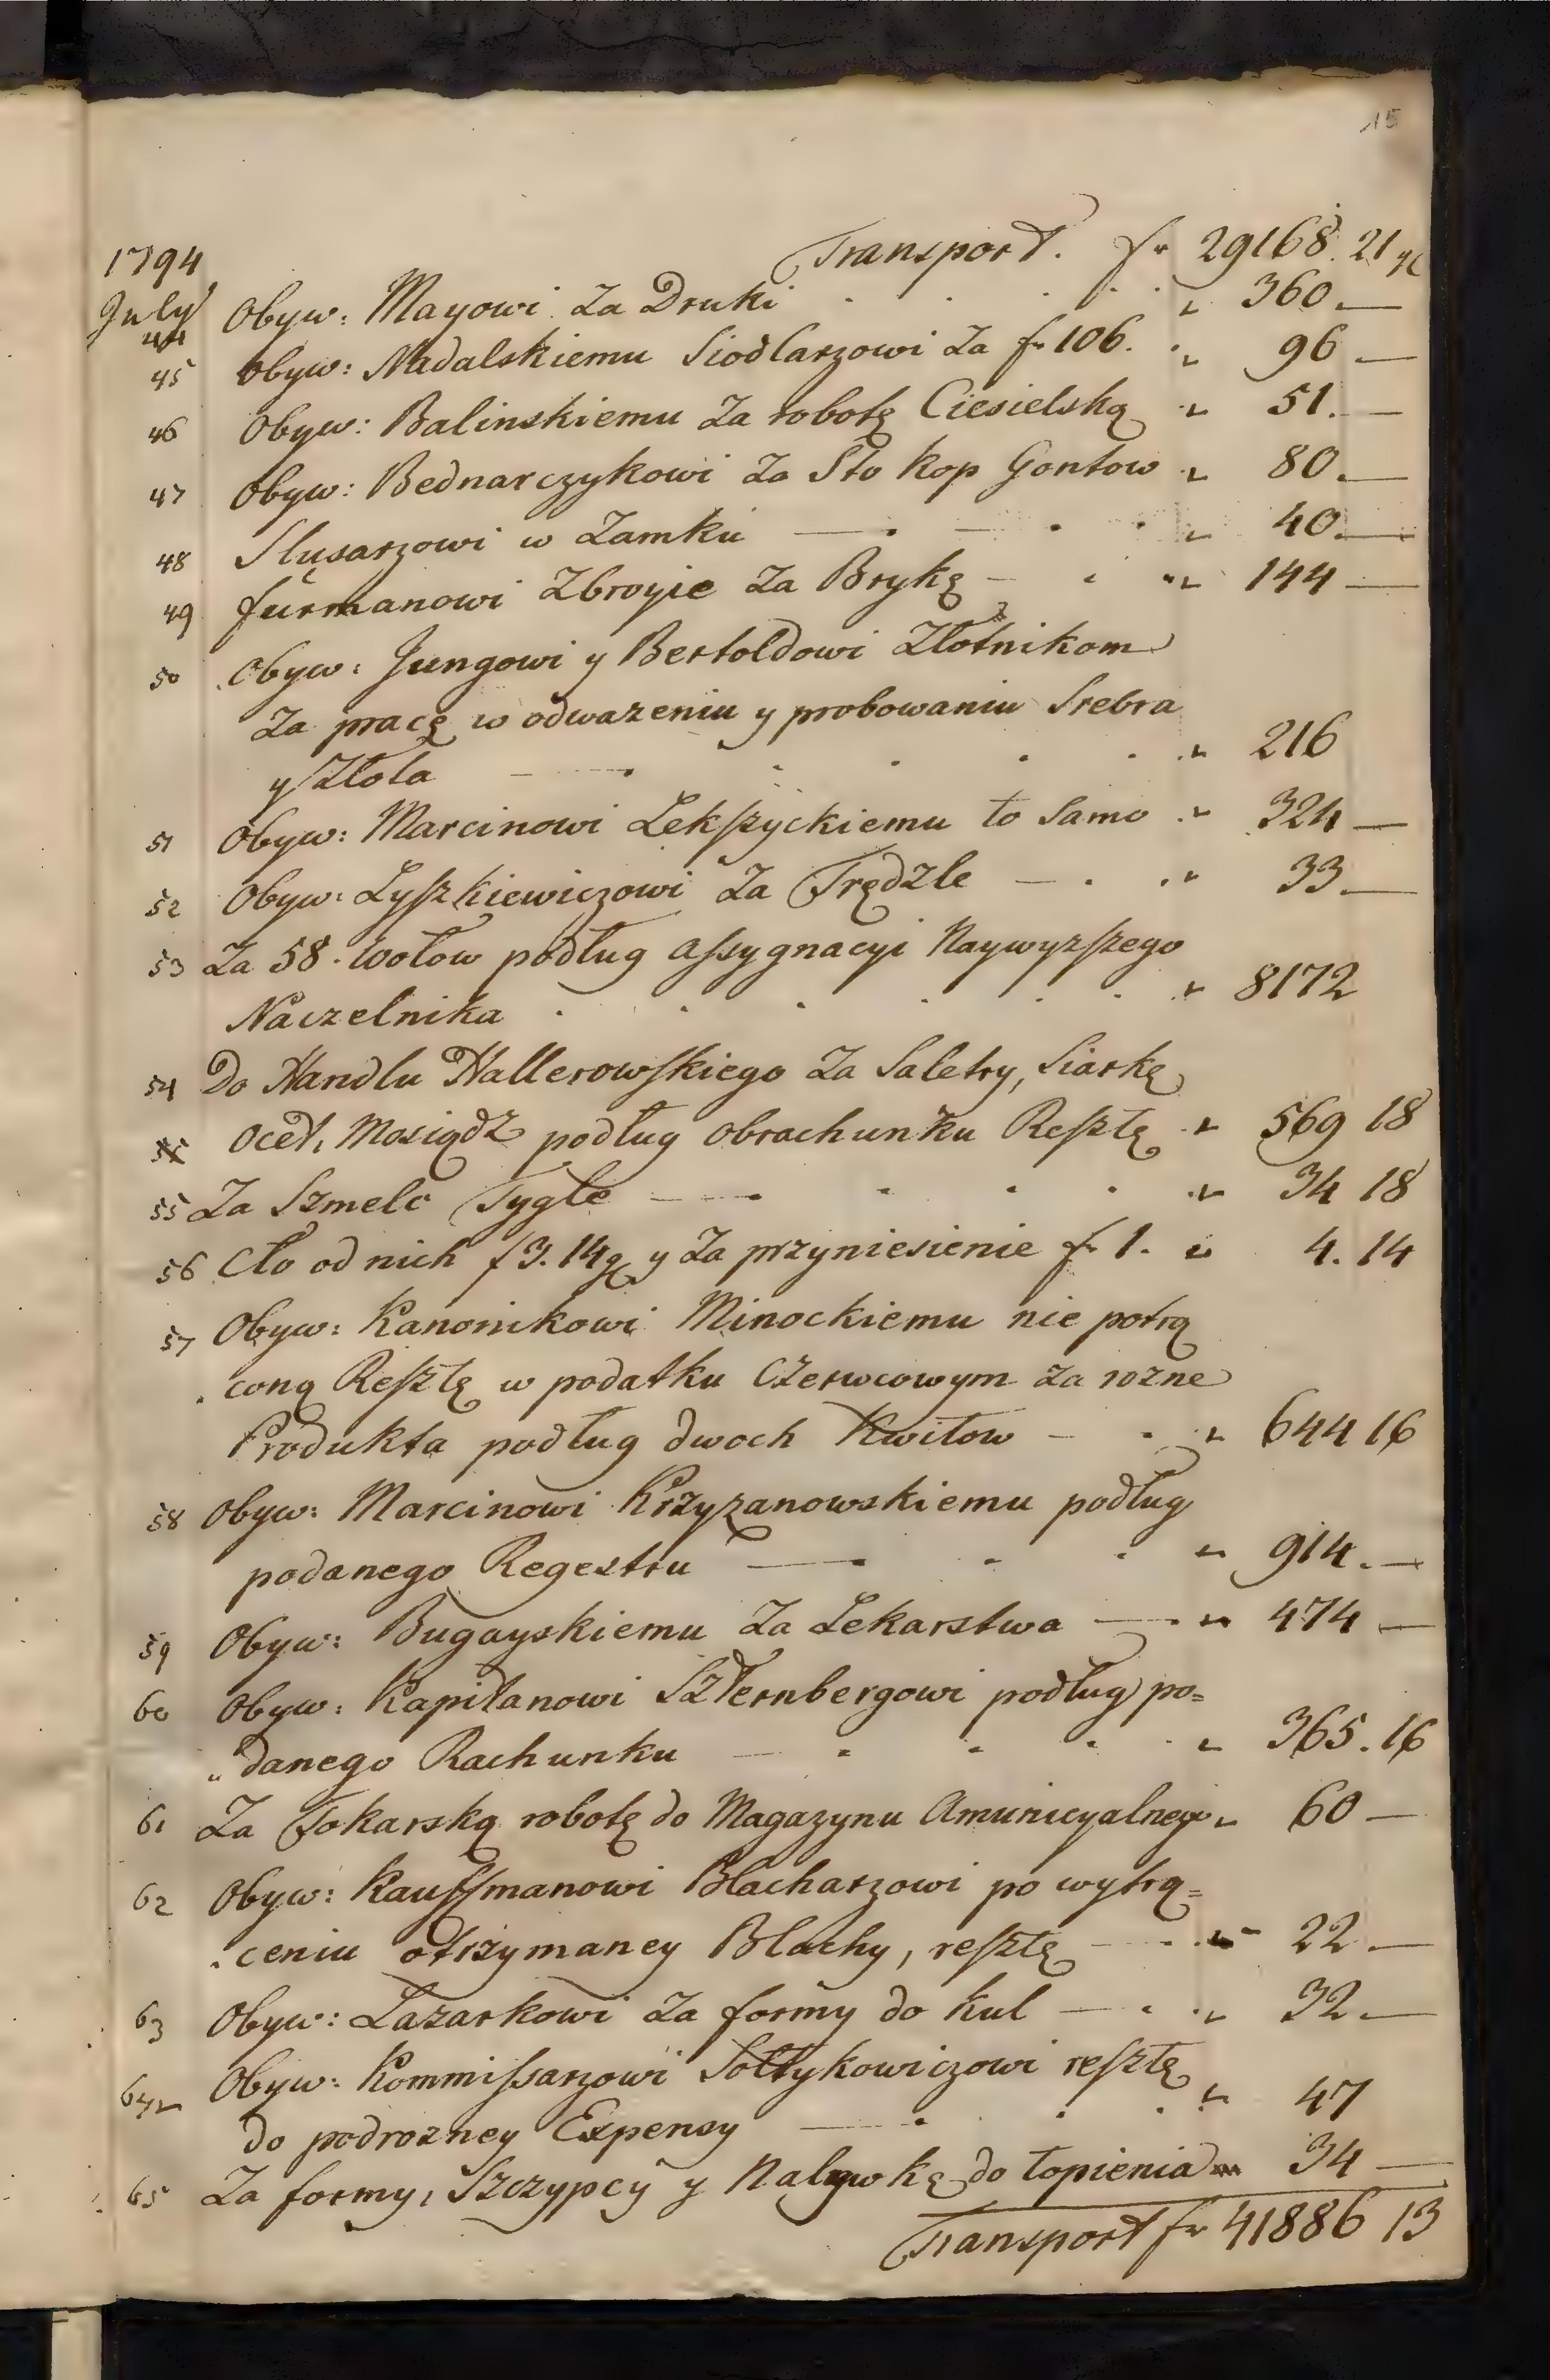 15
1794 Transport. f 29168. 21 g
July
44 Obyw: Mayowi za Druki " 360. —
45 Obyw: Nadalskiemu Siodlarzowi za f 106. " 96 —
46 Obyw: Balinskiemu za robotę Ciesielską " 51. —
47 Obyw: Bednarczykowi za Sto kop Gontow " 80. —
48 Slusarzowi w Zamku — " 40. —
49 furmanowi Zbroyie za Brykę — " 144 —
50 Obyw: Jungowi y Bertoldowi Złotnikom
za pracę w odwazeniu y probowaniu Srebra
y Złota — " 216
51 Obyw: Marcinowi Lekszyckiemu to Samo " 324 —
52 Obyw: Lyszkiewiczowi za Trędzle — " 33. —
53 Za 58. Wołow podług assygnacyi Naywyzszego
Naczelnika " 8172
54 Do Handlu Hallerowskiego za Saletry, Siarkę
Ocet, Mosiądz podług obrachunku Resztę " 569 18
55 Za Szmelc Tygle — " 34 18
56 Cło od nich f 3. 14 g y za przyniesienie f 1. " 4. 14
57 Obyw: Kanonikowi Minockiemu nie potrą
coną Resztę w podatku Czerwcowym za rozne
Produkta podług dwoch Kwitow — " 644 16
58 Obyw: Marcinowi Krzyzanowskiemu podług
podanego Regestru — " 914. —
59 Obyw: Bugayskiemu za Lekarstwa — " 474 —
60 Obyw: Kapitanowi Szternbergowi podług po=
"danego Rachunku — " 365. 16
61 Za Tokarską robotę do Magazynu Amunicyalnego " 60 —
62 Obyw: Kauffmanowi Blacharzowi po wytrą=
ceniu otrzymaney Blachy, resztę — " 22. —
63 Obyw: Lazarkowi za formy do kul — " 32. —
64 Obyw: Kommissarzowi Sołtykowiczowi resztę
do podrozney Expensy — " 47
65 Za formy, Szczypcy y Nalywkę do topienia " 34 —
Transport f 41886 13